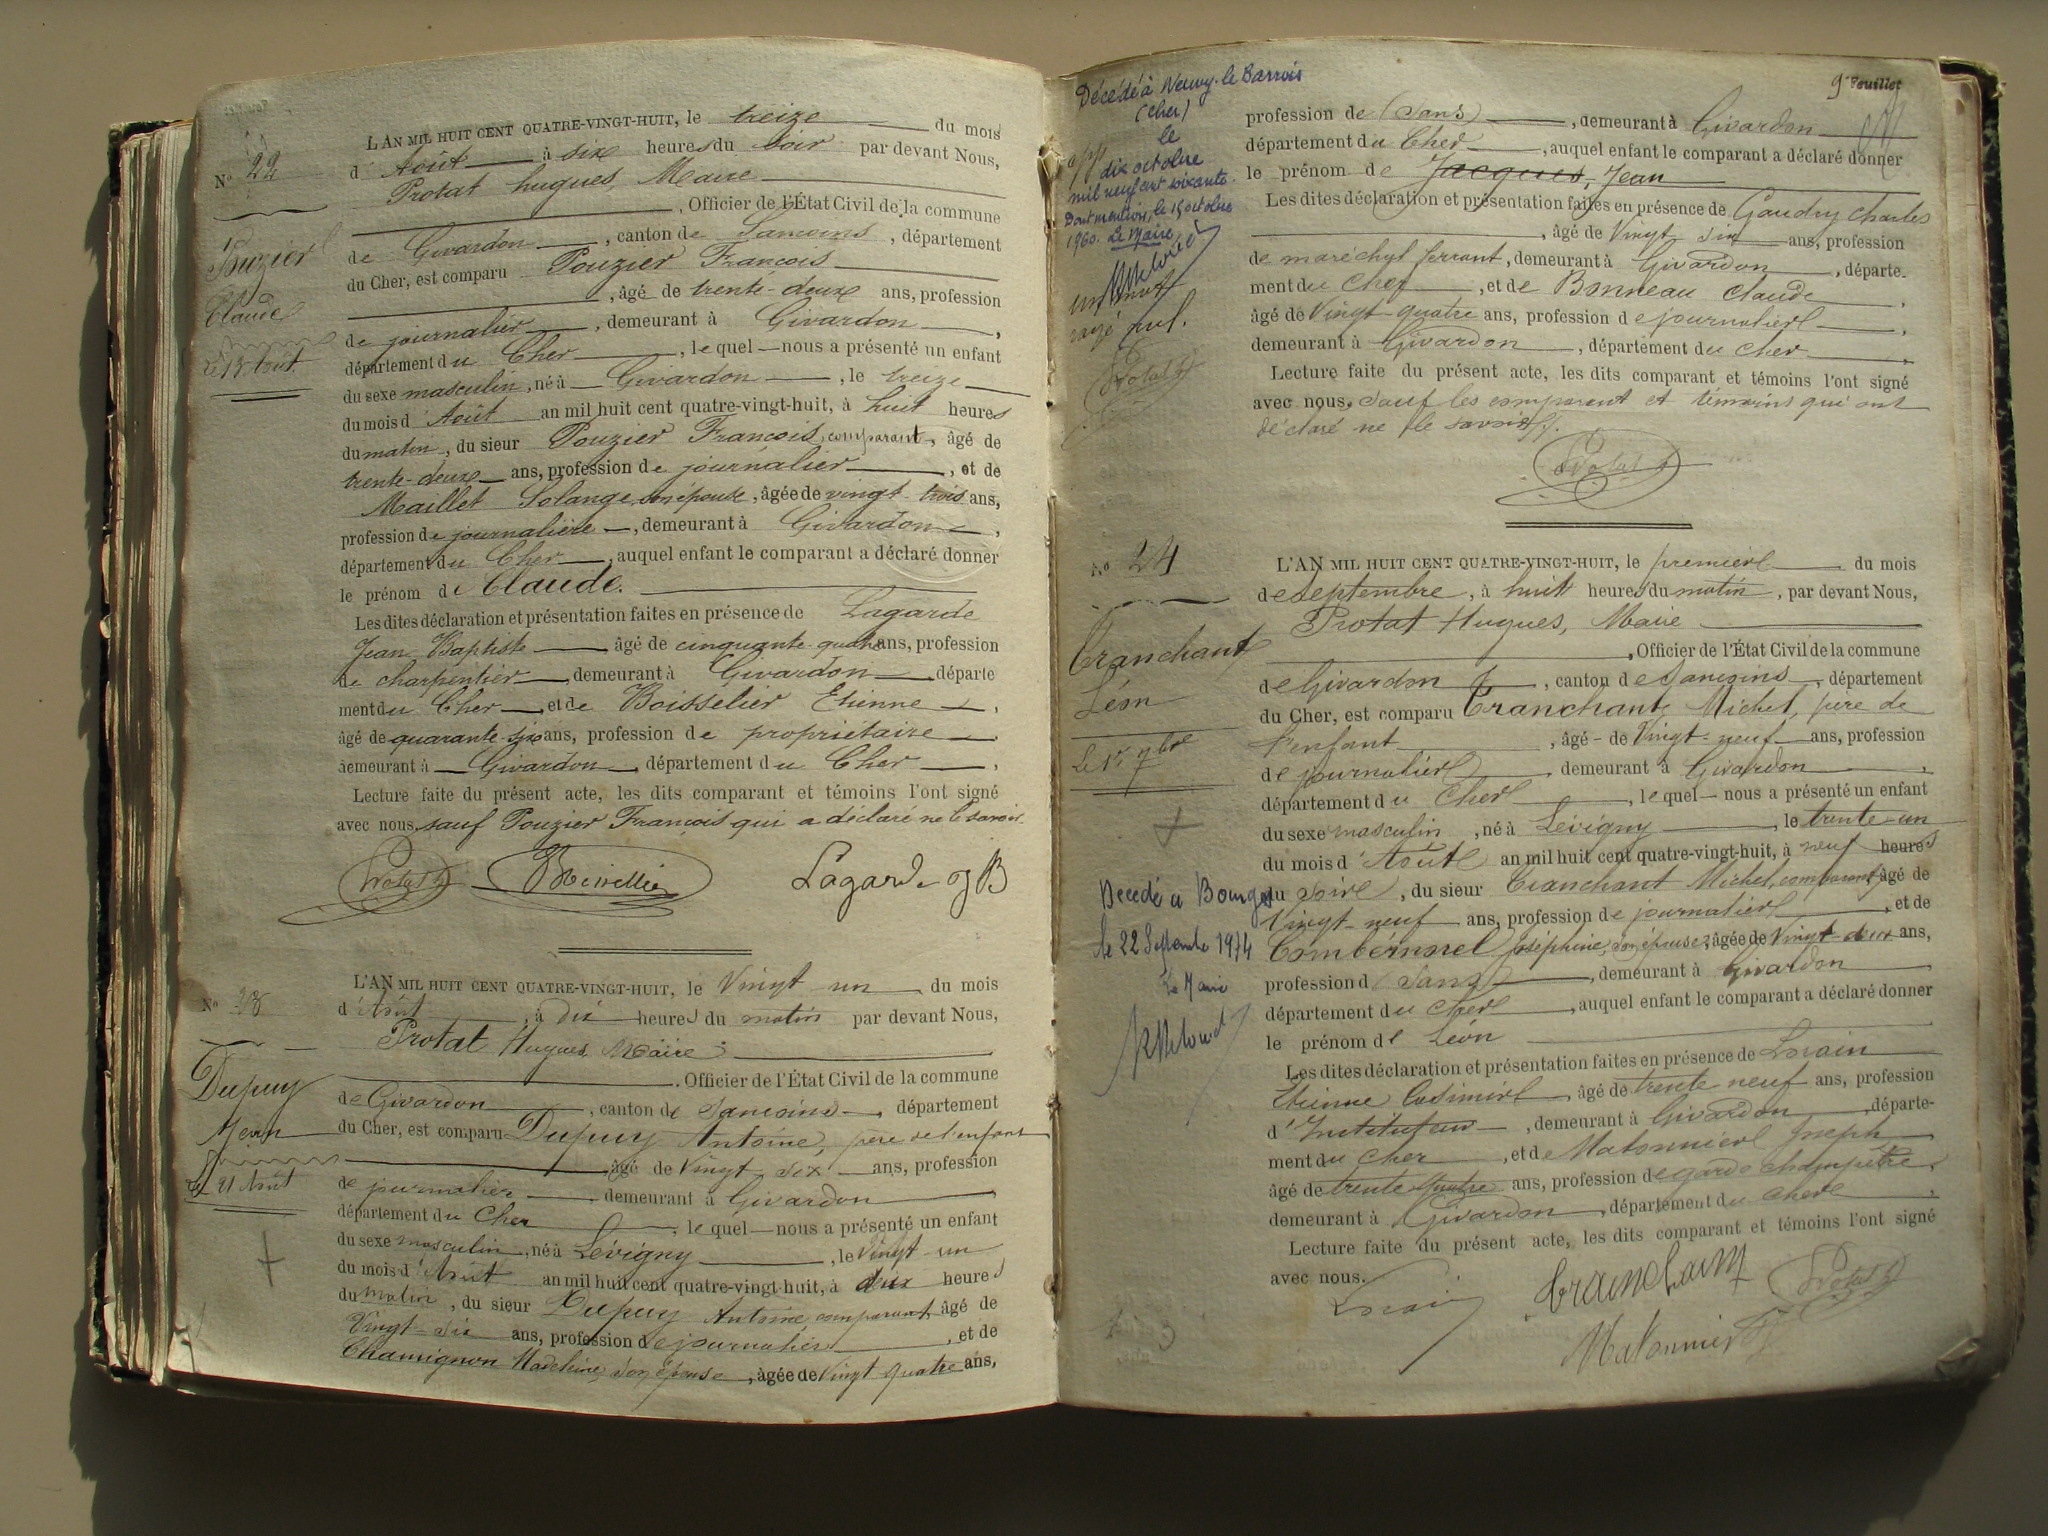 L'AN MIL HUIT CENT QUATRE-VINGT-HUIT, le treize du mois
d'Août à six heures du soir par devant Nous,
Protat hugues, Maire
, Officier de l'État Civil de la commune
de Givardon, canton de Sancoins, département
du Cher, est comparu Pouzier François
, âgé de trente-deux ans, profession
de journalier, demeurant à Givardon,
département du Cher, le quel nous a présenté un enfant
du sexe masculin, né à Givardon, le treize
du mois d'Août an mil huit cent quatre-vingt-huit, à huit heures
du matin, du sieur Pouzier François, comparant, âgé de
trente-deux ans, profession de journalier, et de
Maillet Solange, son épouse, âgée de vingt-trois ans,
profession de journalière, demeurant à Givardon,
département du Cher, auquel enfant le comparant a déclaré donner
le prénom de Claude.
Les dites déclaration et présentation faites en présence de Lagarde
Jean Baptiste âgé de cinquante-quatre ans, profession
de charpentier, demeurant à Givardon, départe
ment du Cher, et de Boisselier Etienne,
âgé de quarante-six ans, profession de propriétaire,
demeurant à Givardon, département du Cher,
Lecture faite du présent acte, les dits comparant et témoins l'ont signé
avec nous, sauf Pouzier François qui a déclaré ne le savoir.
Protat Lagarde JB
N° 22
Pouzier
Claude
Le 13 Août
L'AN MIL HUIT CENT QUATRE-VINGT-HUIT, le Vingt un du mois
d'Août, à dix heures du matin par devant Nous,
Protat Hugues, Maire
. Officier de l'État Civil de la commune
de Givardon, canton de Sancoins, département
du Cher, est comparu Dupuy Antoine, père de l'enfant
âgé de Vingt six ans, profession
de journalier demeurant à Givardon
département du Cher, le quel nous a présenté un enfant
du sexe masculin, né à Lévigny, le Vingt-un
du mois d'Août an mil huit cent quatre-vingt-huit, à deux heures
du matin, du sieur Dupuy Antoine, comparant, âgé de
Vingt-six ans, profession de journalier, et de
Chamignon Madeleine, son épouse, âgée de Vingt quatre ans,
N°
Dupuy
Jean
Le 21 Août
9e Feuillet
profession de (Sans), demeurant à Givardon
département du Cher, auquel enfant le comparant a déclaré donner
le prénom de Jacques, Jean
Les dites déclaration et présentation faites en présence de Gaudry Charles
, âgé de Vingt six ans, profession
de maréchal ferrant, demeurant à Givardon, départe-
ment du Cher, et de Bonneau Claude,
âgé de Vingt-quatre ans, profession de journalier,
demeurant à Givardon, département du Cher,
Lecture faite du présent acte, les dits comparant et témoins l'ont signé
avec nous, sauf les comparant et témoins qui ont
déclaré ne le savoir.
Protat
Décédé à Neuvy-le Barrois
(Cher)
le
dix octobre
mil neuf cent soixante.
Dont mention, le 15 octobre
1960. Le Maire,
app
un mot
rayé nul.
Protat
L'AN MIL HUIT CENT QUATRE-VINGT-HUIT, le premier du mois
de septembre, à huit heures du matin, par devant Nous,
Protat Hugues, Maire
, Officier de l'État Civil de la commune
de Givardon, canton de Sancoins, département
du Cher, est comparu Tranchant Michel, père de
l'enfant, âgé de Vingt-neuf ans, profession
de journalier, demeurant à Givardon,
département du Cher, le quel nous a présenté un enfant
du sexe masculin, né à Lévigny, le trente-un
du mois d'Août an mil huit cent quatre-vingt-huit, à neuf heures
du soir, du sieur Tranchant Michel, comparant, âgé de
Vingt-neuf ans, profession de journalier, et de
Joséphine, son épouse, âgée de Vingt-deux ans,
profession d (Sans), demeurant à Givardon
département du Cher, auquel enfant le comparant a déclaré donner
le prénom de Léon
Les dites déclaration et présentation faites en présence de Lorain
Etienne Casimir, âgé de trente neuf ans, profession
d'Instituteur, demeurant à Givardon, départe-
ment du Cher, et de Matonnier Joseph
âgé de trente quatre ans, profession de garde champêtre,
demeurant à Givardon, département du Cher.
Lecture faite du présent acte, les dits comparant et témoins l'ont signé
avec nous.
Lorain Tranchant Protat
Matonnier
N° 24
Tranchant
Léon
Le 1er 7bre
Décédé à Bourges
le 22 Septembre 1974
Le Maire